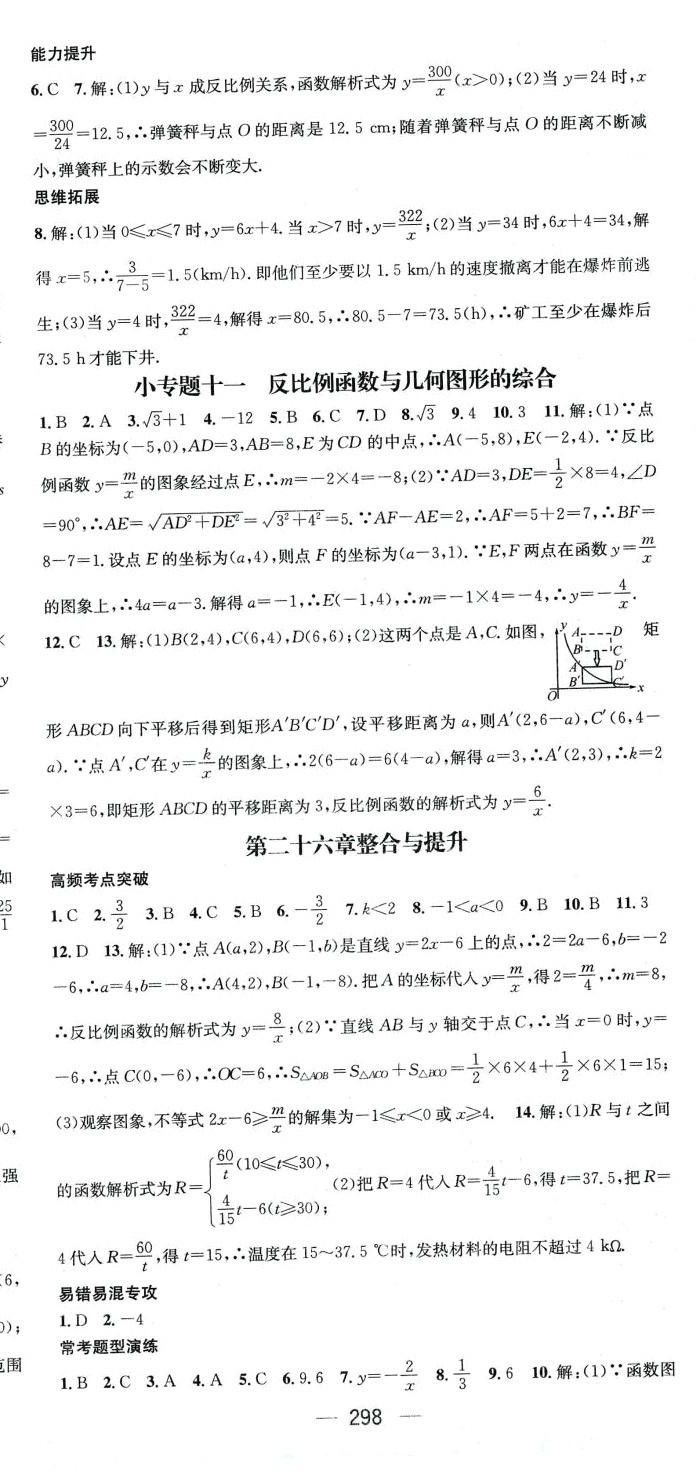 能力提升
6. C 7. 解:(1)y 与 x 成反比例关系,函数解析式为 y=300/x(x>0);(2)当 y=24 时,x
=300/24=12.5,∴弹簧秤与点 O 的距离是 12.5 cm;随着弹簧秤与点 O 的距离不断减
小,弹簧秤上的示数会不断变大.
思维拓展
8. 解:(1)当 0⩽x⩽7 时,y=6x+4. 当 x>7 时,y=322/x;(2)当 y=34 时,6x+4=34,解
得 x=5,∴3/(7-5)=1.5(km/h). 即他们至少要以 1.5 km/h 的速度撤离才能在爆炸前逃
生;(3)当 y=4 时,322/x=4,解得 x=80.5,∴80.5-7=73.5(h),∴矿工至少在爆炸后
73.5 h 才能下井.
小专题十一 反比例函数与几何图形的综合
1. B 2. A 3. √3+1 4. -12 5. B 6. C 7. D 8. √3 9. 4 10. 3 11. 解:(1)∵点
B 的坐标为(-5,0),AD=3,AB=8,E 为 CD 的中点,∴A(-5,8),E(-2,4). ∵反比
例函数 y=m/x 的图象经过点 E,∴m=-2×4=-8;(2)∵AD=3,DE=1/2×8=4,∠D
=90°,∴AE=√(AD²+DE²)=√(3²+4²)=5. ∵AF-AE=2,∴AF=5+2=7,∴BF=
8-7=1. 设点 E 的坐标为(a,4),则点 F 的坐标为(a-3,1). ∵E,F 两点在函数 y=m/x
的图象上,∴4a=a-3. 解得 a=-1,∴E(-1,4),∴m=-1×4=-4,∴y=-4/x.
12. C 13. 解:(1)B(2,4),C(6,4),D(6,6);(2)这两个点是 A,C. 如图, 矩
y A D
B C
A′ D′
B′ C′
O x
形 ABCD 向下平移后得到矩形A′B′C′D′,设平移距离为 a,则A′(2,6-a),C′(6,4-
a). ∵点 A′,C′在 y=k/x 的图象上,∴2(6-a)=6(4-a),解得 a=3,∴A′(2,3),∴k=2
×3=6,即矩形 ABCD 的平移距离为 3,反比例函数的解析式为 y=6/x.
第二十六章整合与提升
高频考点突破
1. C 2. 3/2 3. B 4. C 5. B 6. -3/2 7. k<2 8. -1<a<0 9. B 10. B 11. 3
12. D 13. 解:(1)∵点 A(a,2),B(-1,b)是直线 y=2x-6 上的点,∴2=2a-6,b=-2
-6,∴a=4,b=-8,∴A(4,2),B(-1,-8). 把 A 的坐标代入 y=m/x,得 2=m/4,∴m=8,
∴反比例函数的解析式为 y=8/x;(2)∵直线 AB 与 y 轴交于点 C,∴当 x=0 时,y=
-6,∴点 C(0,-6),∴OC=6,∴S△AOB=S△ACO+S△BCO=1/2×6×4+1/2×6×1=15;
(3)观察图象,不等式 2x-6⩾m/x 的解集为-1⩽x<0 或 x⩾4. 14. 解:(1)R 与 t 之间
的函数解析式为 R={60/t(10⩽t⩽30), 4/15t-6(t⩾30); (2)把 R=4 代入 R=4/15t-6,得 t=37.5,把 R=
4 代入 R=60/t,得 t=15,∴温度在 15~37.5 ℃时,发热材料的电阻不超过 4 kΩ.
易错易混专攻
1. D 2. -4
常考题型演练
1. B 2. C 3. A 4. A 5. C 6. 9.6 7. y=-2/x 8. 1/3 9. 6 10. 解:(1)∵函数图
— 298 —